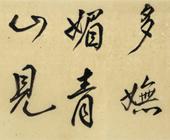 多嫵
媚青
山見